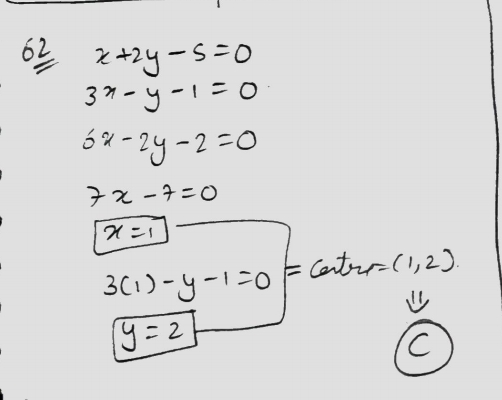 62
x+2y-5=0
3x-y-1=0
6x-2y-2=0
7x-7=0
x=1
3(1)-y-1=0 = Centre=(1,2).
y=2
⇓
C